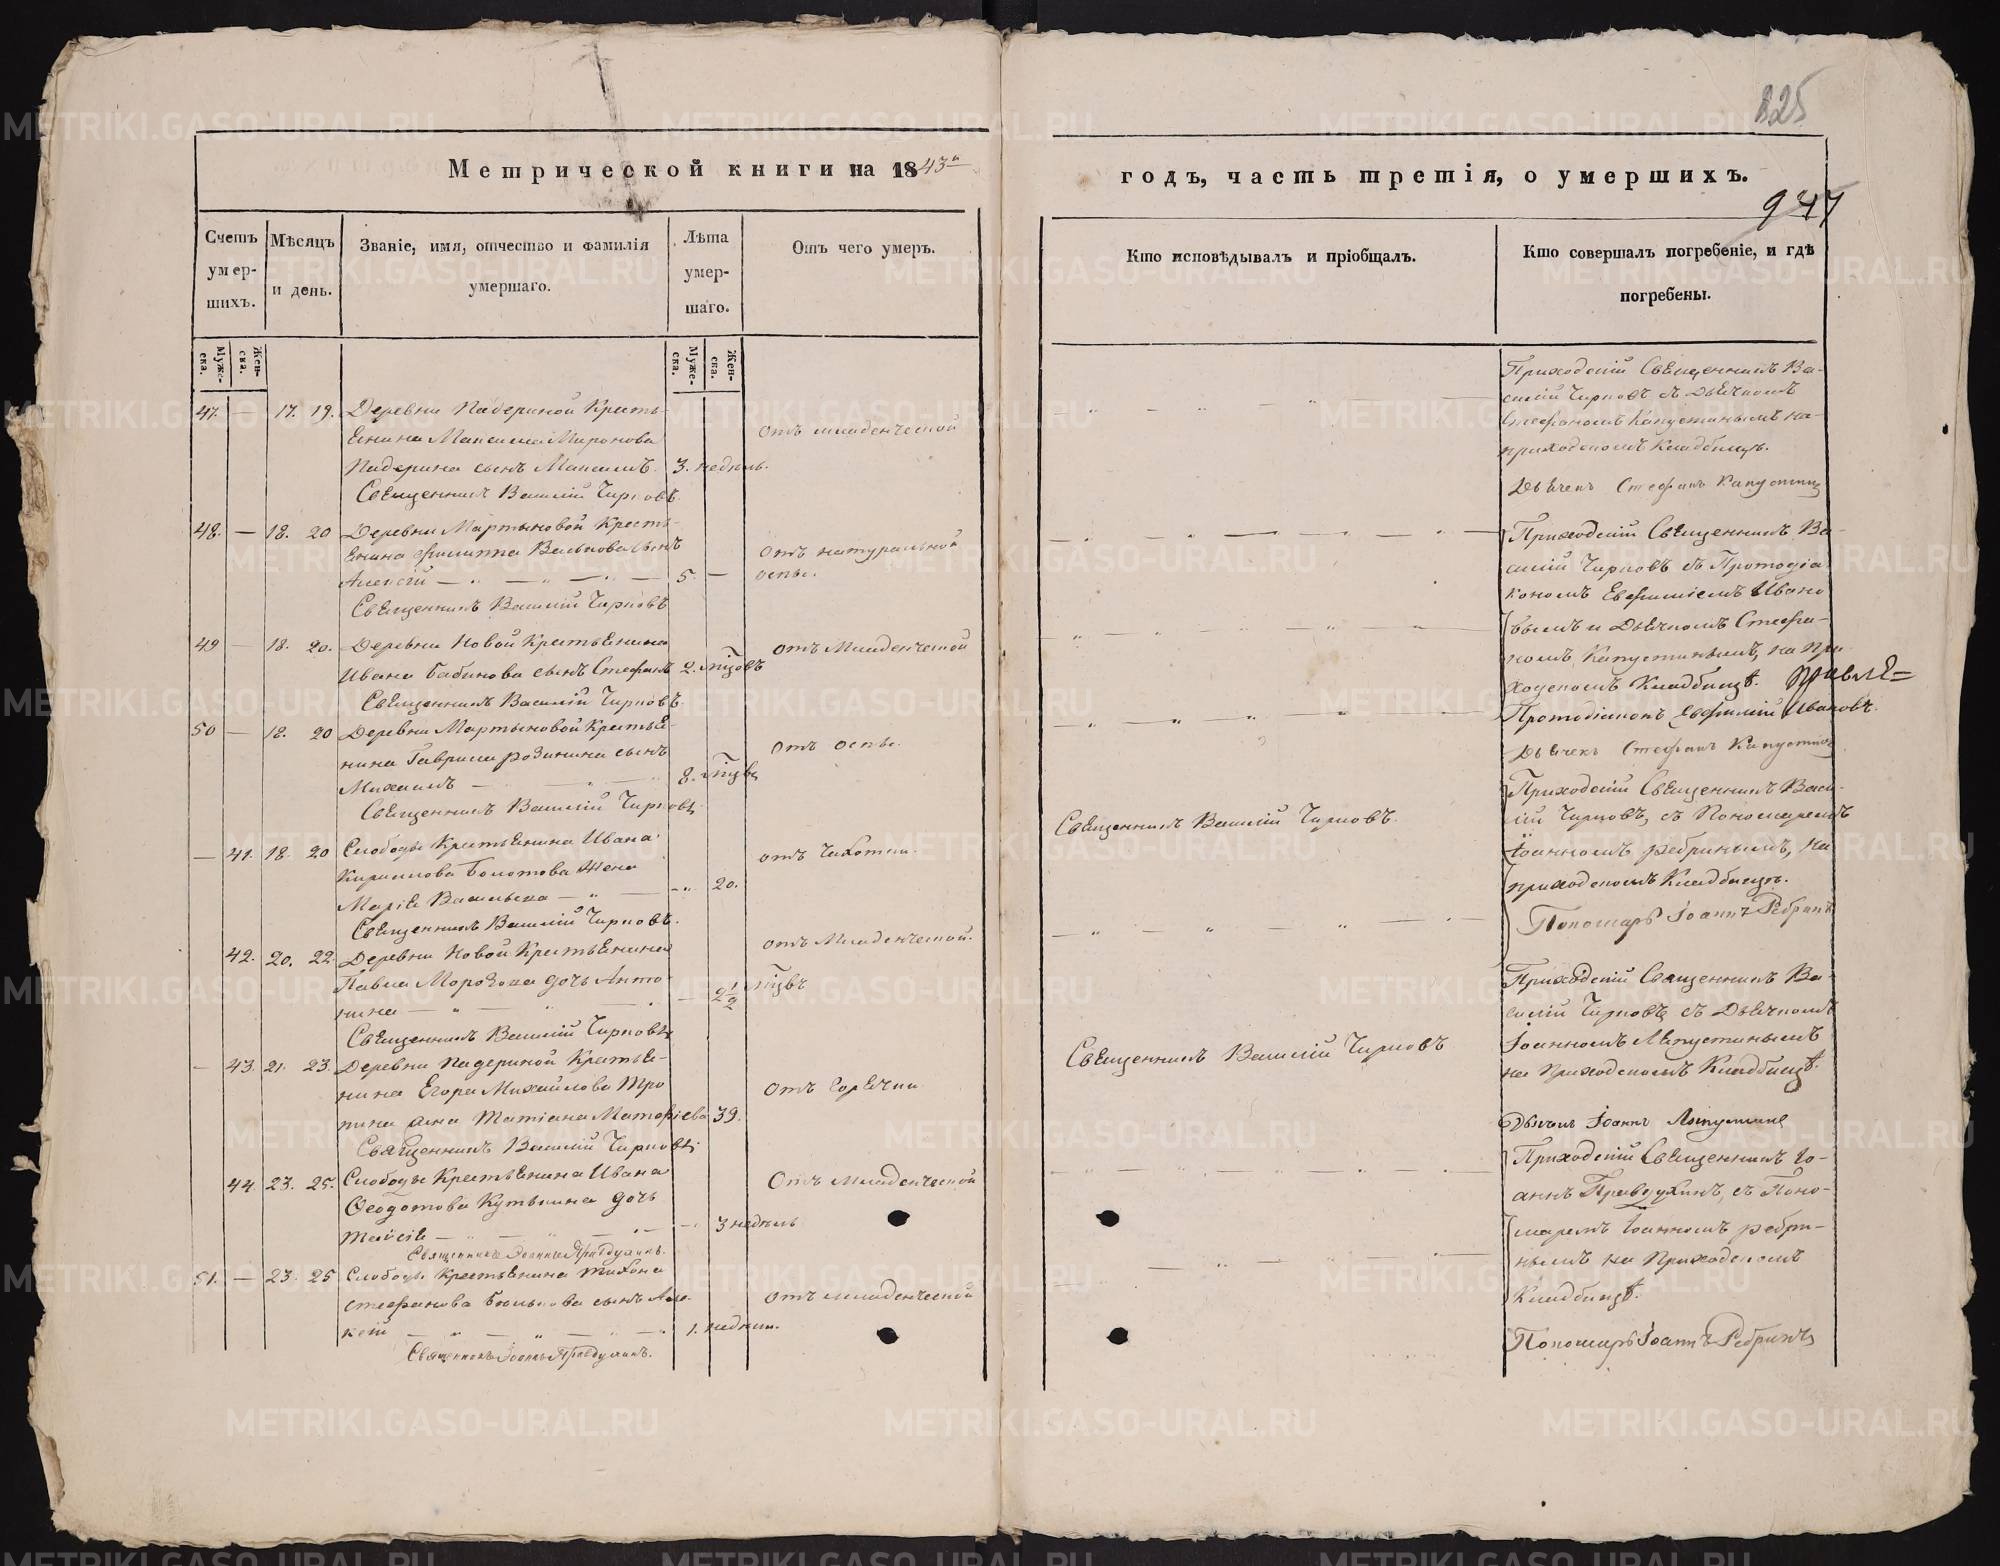 825
Метрической книги на 1843й
годъ, часть третія, о умершихъ.
947
Счетъ умер-шихъ.
Мѣсяцъ и день.
Званіе, имя, отчество и фамилія умершаго.
Лѣта умер-шаго.
Отъ чего умеръ.
Кто исповѣдывалъ и пріобщалъ.
Кто совершалъ погребеніе, и гдѣ погребены.
Муже-ска.
Жен-ска.
Муже-ска.
Жен-ска.
47. — 17. 19. Деревни Падериной Кресть-
янина Максима Миронова
Падерина сынъ Максимъ. 3. недѣль.
отъ младенческой
Священникъ Василій Чирковъ.
48. — 18. 20 Деревни Мартыновой Кресть-
янина Филиппа сынъ
Алексій — „ — „ — „ — 5. —
отъ натуральной
оспы.
Священникъ Василій Чирковъ
49 — 18. 20. Деревни Новой Крестьянина
Ивана Бабинова сынъ Стефанъ 2. мѣсяцовъ
отъ Младенческой
Священникъ Василій Чирковъ.
50 — 18. 20 Деревни Мартыновой Крестья-
нина Гаврила сынъ
Михаилъ — 8.
отъ оспы.
Священникъ Василій Чирковъ
— 41. 18. 20 Слободы Крестьянина Ивана
Кириллова Болотова жена
Марія Васильева — „ — 20.
отъ чахотки.
Священникъ Василій Чирковъ.
42. 20. 22. Деревни Новой Крестьянина
Павла Морозова дочь Анто-
нина — „ — „ — 2½
отъ Младенческой.
Священникъ Василій Чирковъ
— 43. 21. 23. Деревни Падериной Крестья-
нина Егора Михайлова Тро
пина жена Татіана Матфіева 39.
отъ горячки
Священникъ Василій Чирковъ
44. 23. 25. Слободы Крестьянина Ивана
Ѳеодотова Кутькина дочь
Таисія — „ — „ — 3 недѣль
Отъ Младенческой
Священникъ Іоаннъ Правдухинъ.
51. — 23. 25 Слободы Крестьянина Тихона
Стефанова сынъ Але-
ксій — „ — „ — „ — 1. недѣли.
отъ младенческой
Священникъ Іоаннъ Правдухинъ.
Священникъ Василій Чирковъ.
Священникъ Василій Чирковъ
Приходскій Священникъ Ва-
силій Чирковъ съ Дьячкомъ
Стефаномъ Капустинымъ на
приходскомъ Кладбищѣ.
Дьячекъ Стефанъ Капустинъ
Приходскій Священникъ Ва-
силій Чирковъ съ Протодіа
кономъ Евфиміемъ Ивано
вымъ и Дьячкомъ Стефа-
номъ Капустинымъ, на При-
ходскомъ Кладбищѣ.
Протодіаконъ Евфимій Ивановъ.
Дьячекъ Стефанъ Капустинъ
Приходскій Священникъ Васи-
лій Чирковъ, съ Пономаремъ
Іоанномъ Ребринымъ, на
приходскомъ Кладбищѣ.
Пономарь Іоаннъ Ребринъ
Приходскій Священникъ Ва-
силій Чирковъ съ Дьячкомъ
Іоанномъ
на Приходскомъ Кладбищѣ.
Дьячекъ Іоаннъ
Приходскій Священникъ Іо-
аннъ Правдухинъ, съ Поно-
маремъ Іоанномъ Ребри-
нымъ на Приходскомъ
Кладбищѣ.
Пономарь Іоаннъ Ребринъ
METRIKI.GASO-URAL.RU